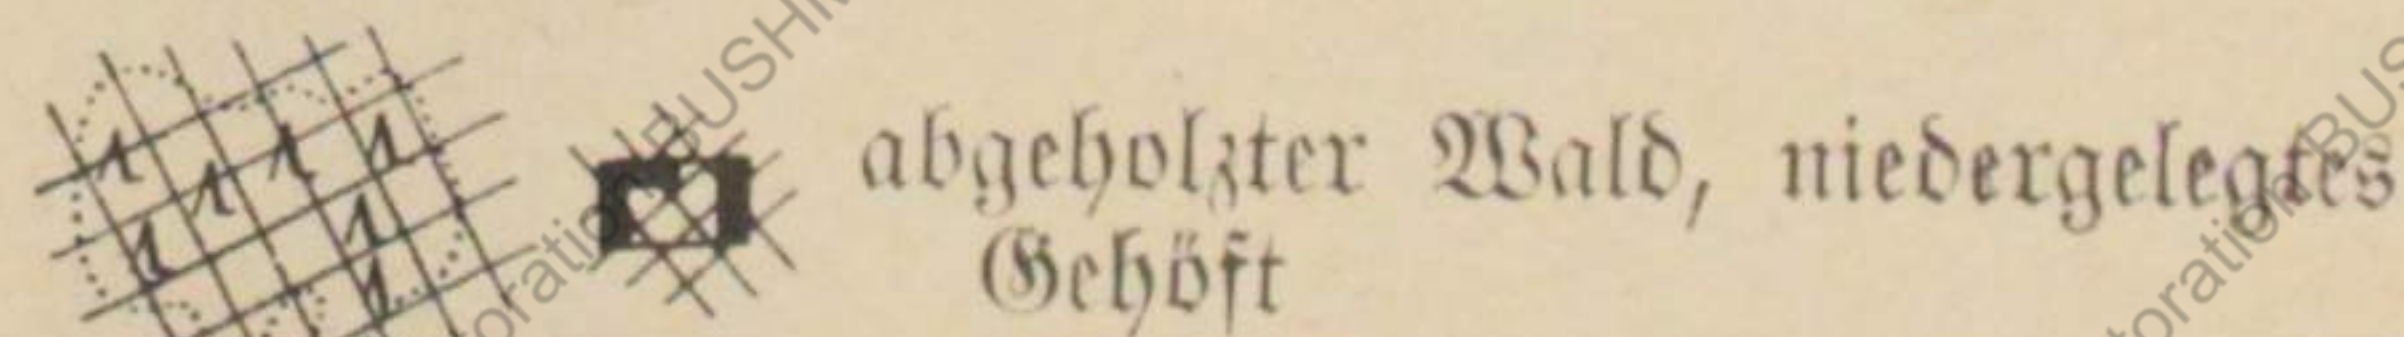 abgeholzter Wald, niedergelegtes
Gehöft